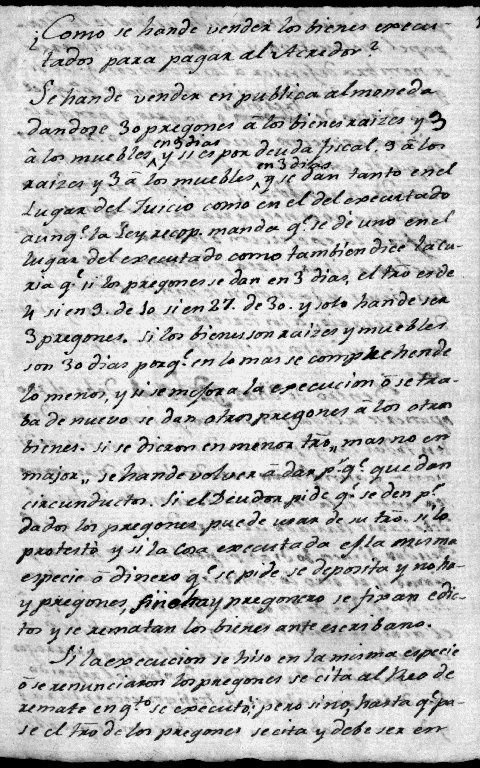 ¿Como se hande vender los bienes execu-
tados para pagar al Acredor?
Se hande vender en publica almoneda
dandose 30 pregones â los bienes raizes y 3
â los muebles en 9 dias y si es por deuda fiscal. 9 â los
raizes y 3 â los muebles en 3 dias y se dan tanto en el
Lugar del Juicio como en el del executado
aunq.e la Ley recop. manda q.e se dé uno en el
lugar del executado como tambien dice la Cu-
ria q.e si los pregones se dan en 3 dias, el tr̃o es de
4 si en 9. de 10 si en 27. de 30. y solo hande ser
3 pregones. si los bienes son raizes y muebles
son 30 dias porq.e en lo mas se comprehende
lo menos, y si se mejora la execucion ô se tra-
ba de nuevo se dan otros pregones â los otros
bienes. si se dieron en menor tr̃o, mas no en
major, se hande volver â dar p.r q.e quedan
circunductos. Si el Deudor pide q.e se den p.r
dados los pregones puede usar de su tr̃o. si lo
protestò y si la cosa executada es la misma
especie ô dinero q.e se pide se deposita y no ha-
y pregones, si no hay pregonero se fixan edic-
tos y se rematan los bienes ante escribano.
Si la execucion se hiso en la misma especie
ô se renunciaron los pregones se cita al Reo de
remate en q.to se executò, pero si no, hasta q.e pa-
se el tr̃o de los pregones se cita y debe ser en